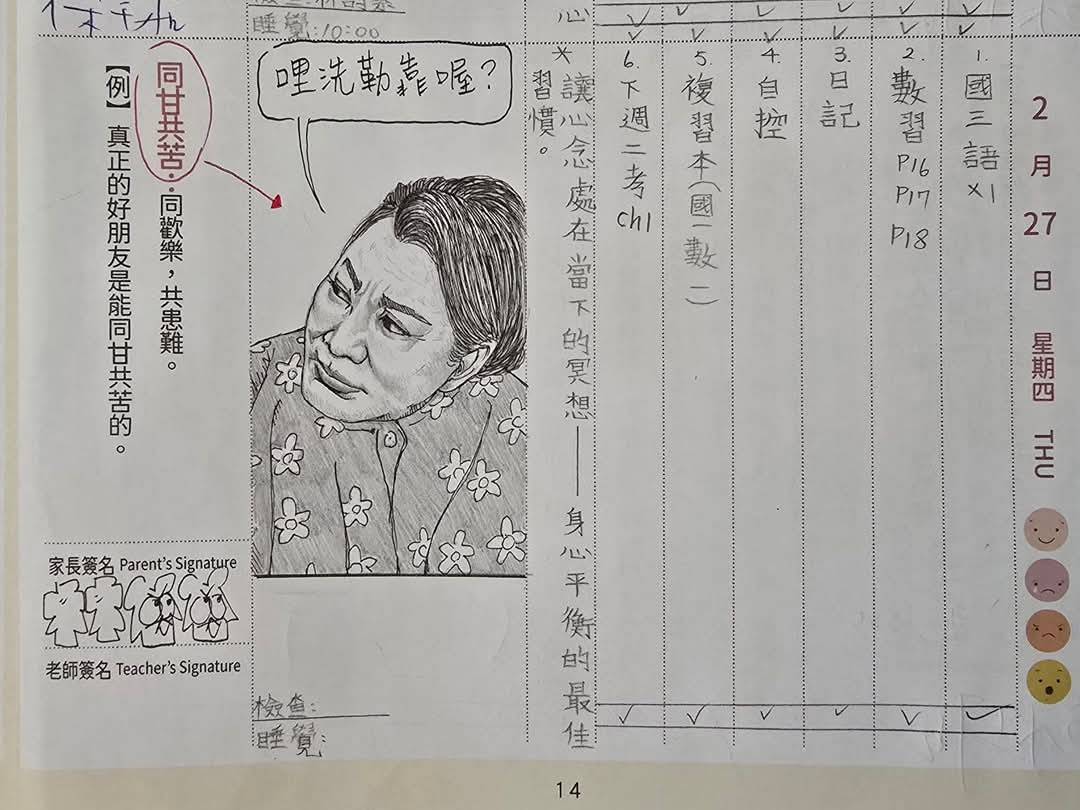 2月27日 星期四 THU
1. 國三語x1
2. 數習 P16 P17 P18
3. 日記
4. 自控
5. 複習本(國一數二)
6. 下週二考ch1
*讓心念處在當下的冥想——身心平衡的最佳
習慣。
心
睡覺:10:00
哩洗勒靠喔?
檢查:
睡覺:
同甘共苦:同歡樂,共患難。
【例】真正的好朋友是能同甘共苦的。
家長簽名 Parent's Signature
老師簽名 Teacher's Signature
14